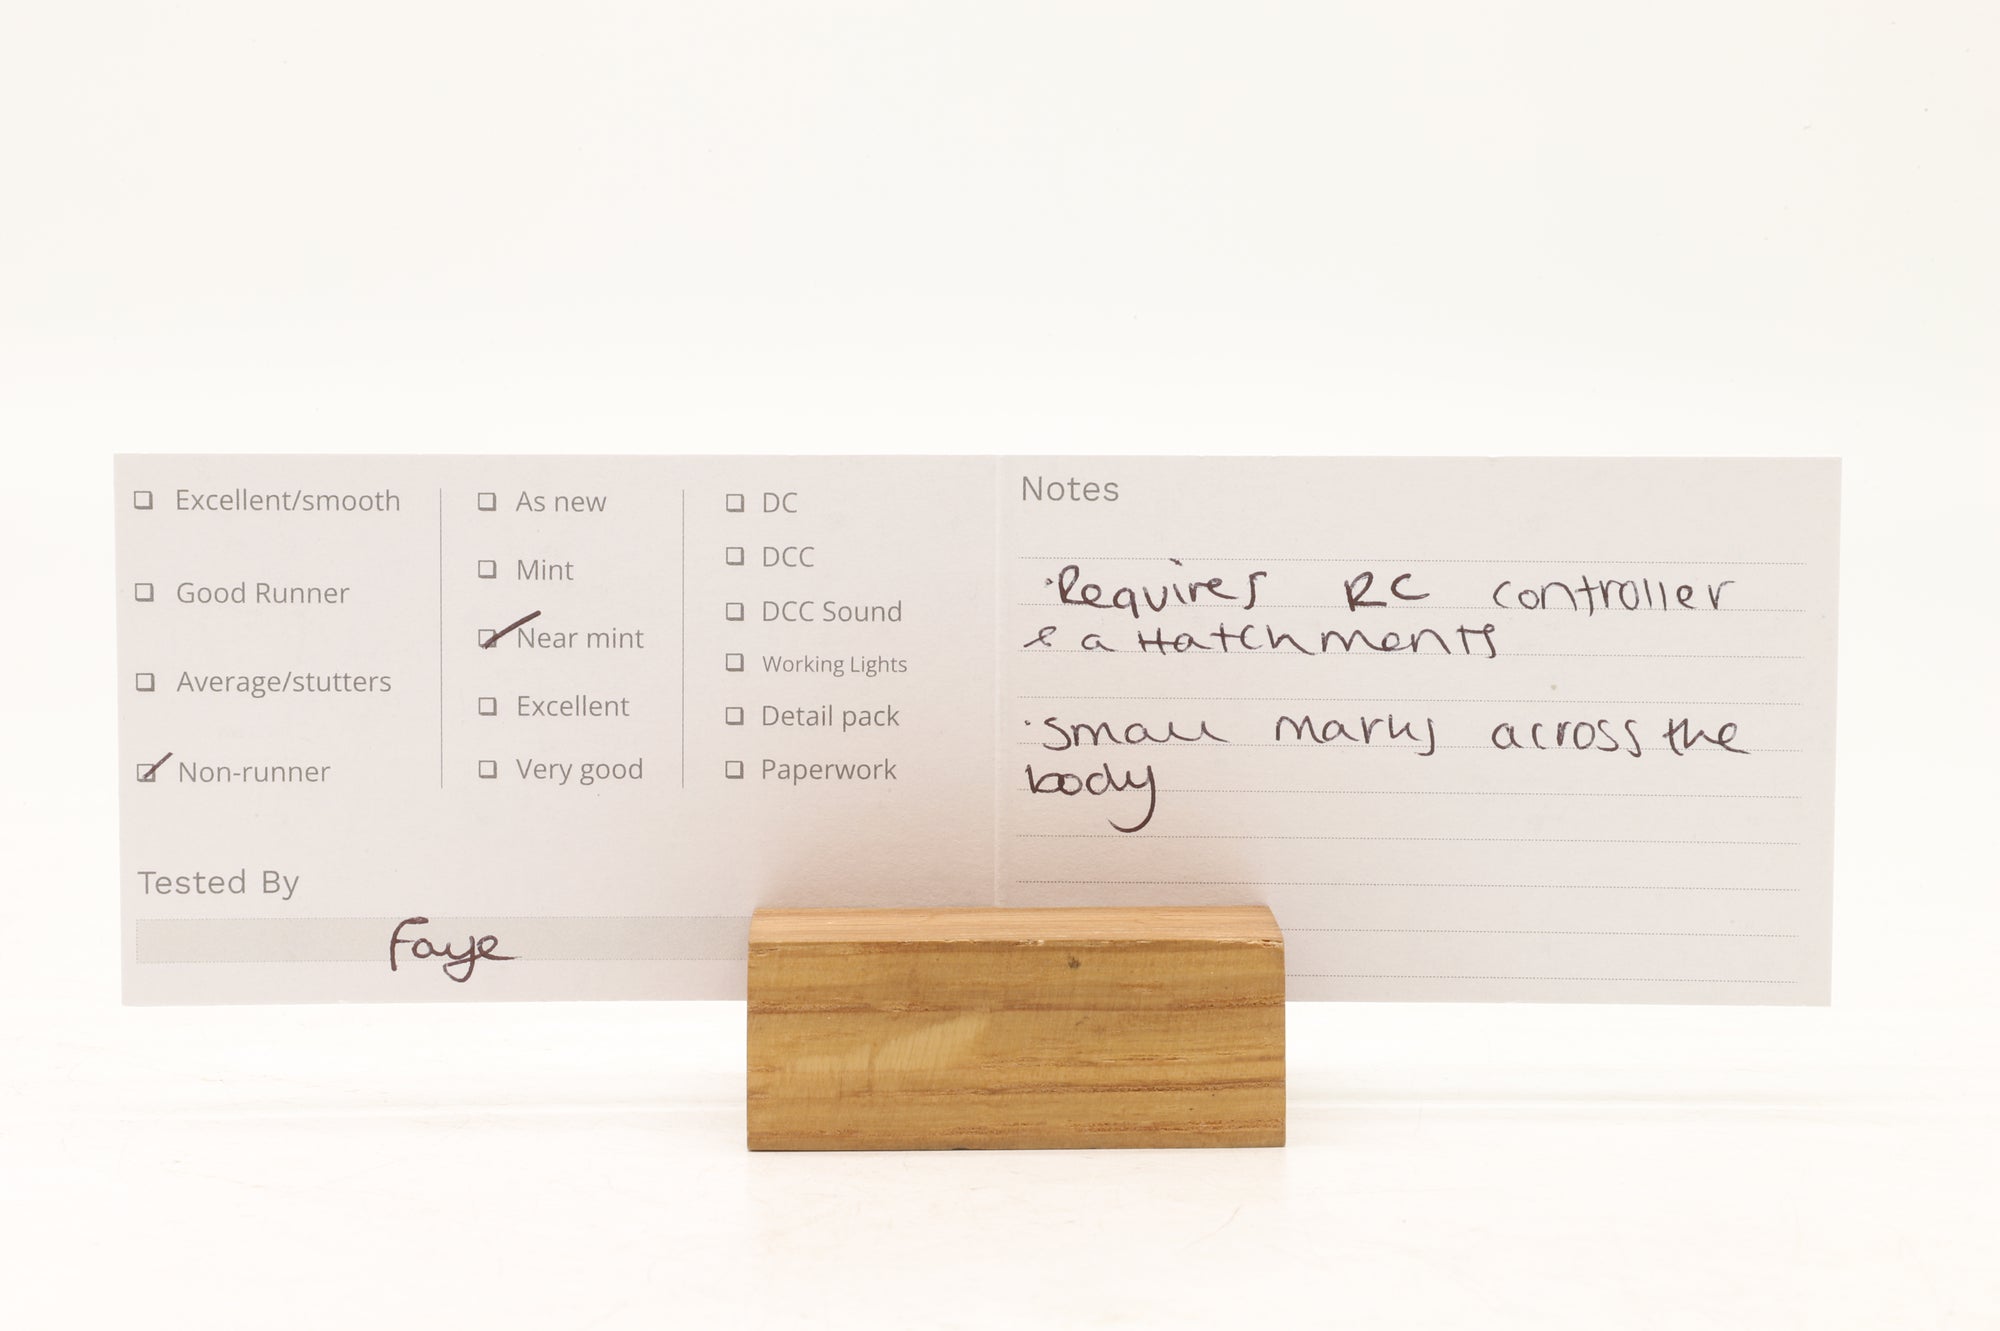 Excellent/smooth
Good Runner
Average/stutters
Non-runner
As new
Mint
Near mint
Excellent
Very good
DC
DCC
DCC Sound
Working Lights
Detail pack
Paperwork
Tested By
Faye
Notes
·Requires RC controller
& attatchments
·Small marks across the
body